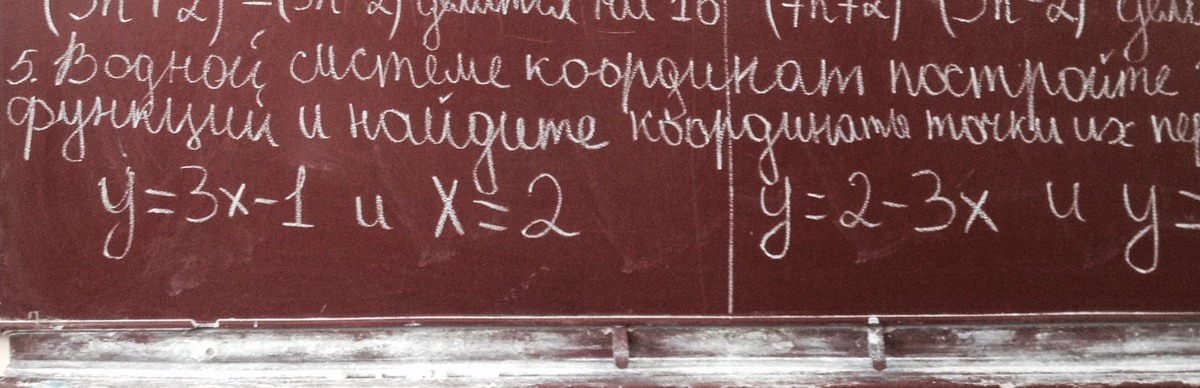 (5n+2)²-(3n-2)² делится на 16 (7n+2)² (3n-2)²
5. В одной системе координат постройте
функций и найдите координаты точки их пер
y=3x-1 и x=2 y=2-3x и y=